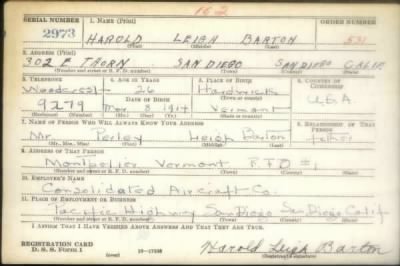 162
SERIAL NUMBER 1. NAME (Print) ORDER NUMBER
2973 HAROLD LEIGH BARTON 531
(First) (Middle) (Last)
2. ADDRESS (Print)
302 E THORN SAN DIEGO SAN DIEGO CALIF
(Number and street or R. F. D. number) (Town) (County) (State)
3. TELEPHONE 4. AGE IN YEARS 5. PLACE OF BIRTH 6. COUNTRY OF CITIZENSHIP
Woodcrest 26 Hardwick
DATE OF BIRTH (Town or county) U.S.A.
9279 Mar 8 1914 Vermont
(Mo.) (Day) (Yr.) (State or country)
7. NAME OF PERSON WHO WILL ALWAYS KNOW YOUR ADDRESS RELATIONSHIP OF THAT PERSON
Mr. Perley Leigh Barton father
(Mr., Mrs., Miss) (First) (Middle) (Last)
9. ADDRESS OF THAT PERSON
Montpelier Vermont RFD #1
(Number and street or R. F. D. number) (Town) (County) (State)
10. EMPLOYER'S NAME
Consolidated Aircraft Co.
11. PLACE OF EMPLOYMENT OR BUSINESS
Pacific Highway San Diego San Diego Calif
(Number and street or R. F. D. number) (Town) (County) (State)
I AFFIRM THAT I HAVE VERIFIED ABOVE ANSWERS AND THAT THEY ARE TRUE.
REGISTRATION CARD
D. S. S. Form 1 (over) Harold Leigh Barton